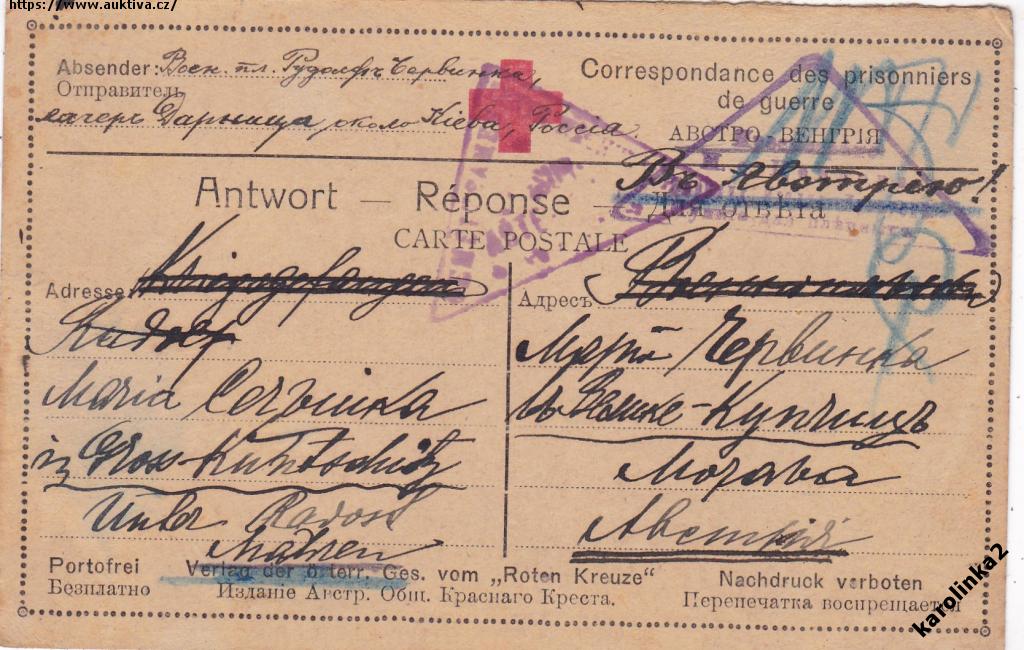 https://www.auktiva.cz/
Absender: Воен. пл. Рудольфъ Червинка,
Отправитель
лагерь Дарница, около Кіева, Россія
Correspondance des prisonniers
de guerre
АВСТРО-ВЕНГРІЯ
Въ Австрію!
Antwort — Réponse — Для отвѣта
CARTE POSTALE
Adresse Kriegsgefangenen
Rudolf
Maria Cervinka
in Gross-Kuntschitz
Unter Radost
Mähren
Адресъ
Марія Червинка
Купчицъ
Морава
Австрія
Portofrei
Безплатно
Verlag der österr. Ges. vom „Roten Kreuze"
Изданіе Австр. Общ. Краснаго Креста.
Nachdruck verboten
Перепечатка воспрещается
karolinka2